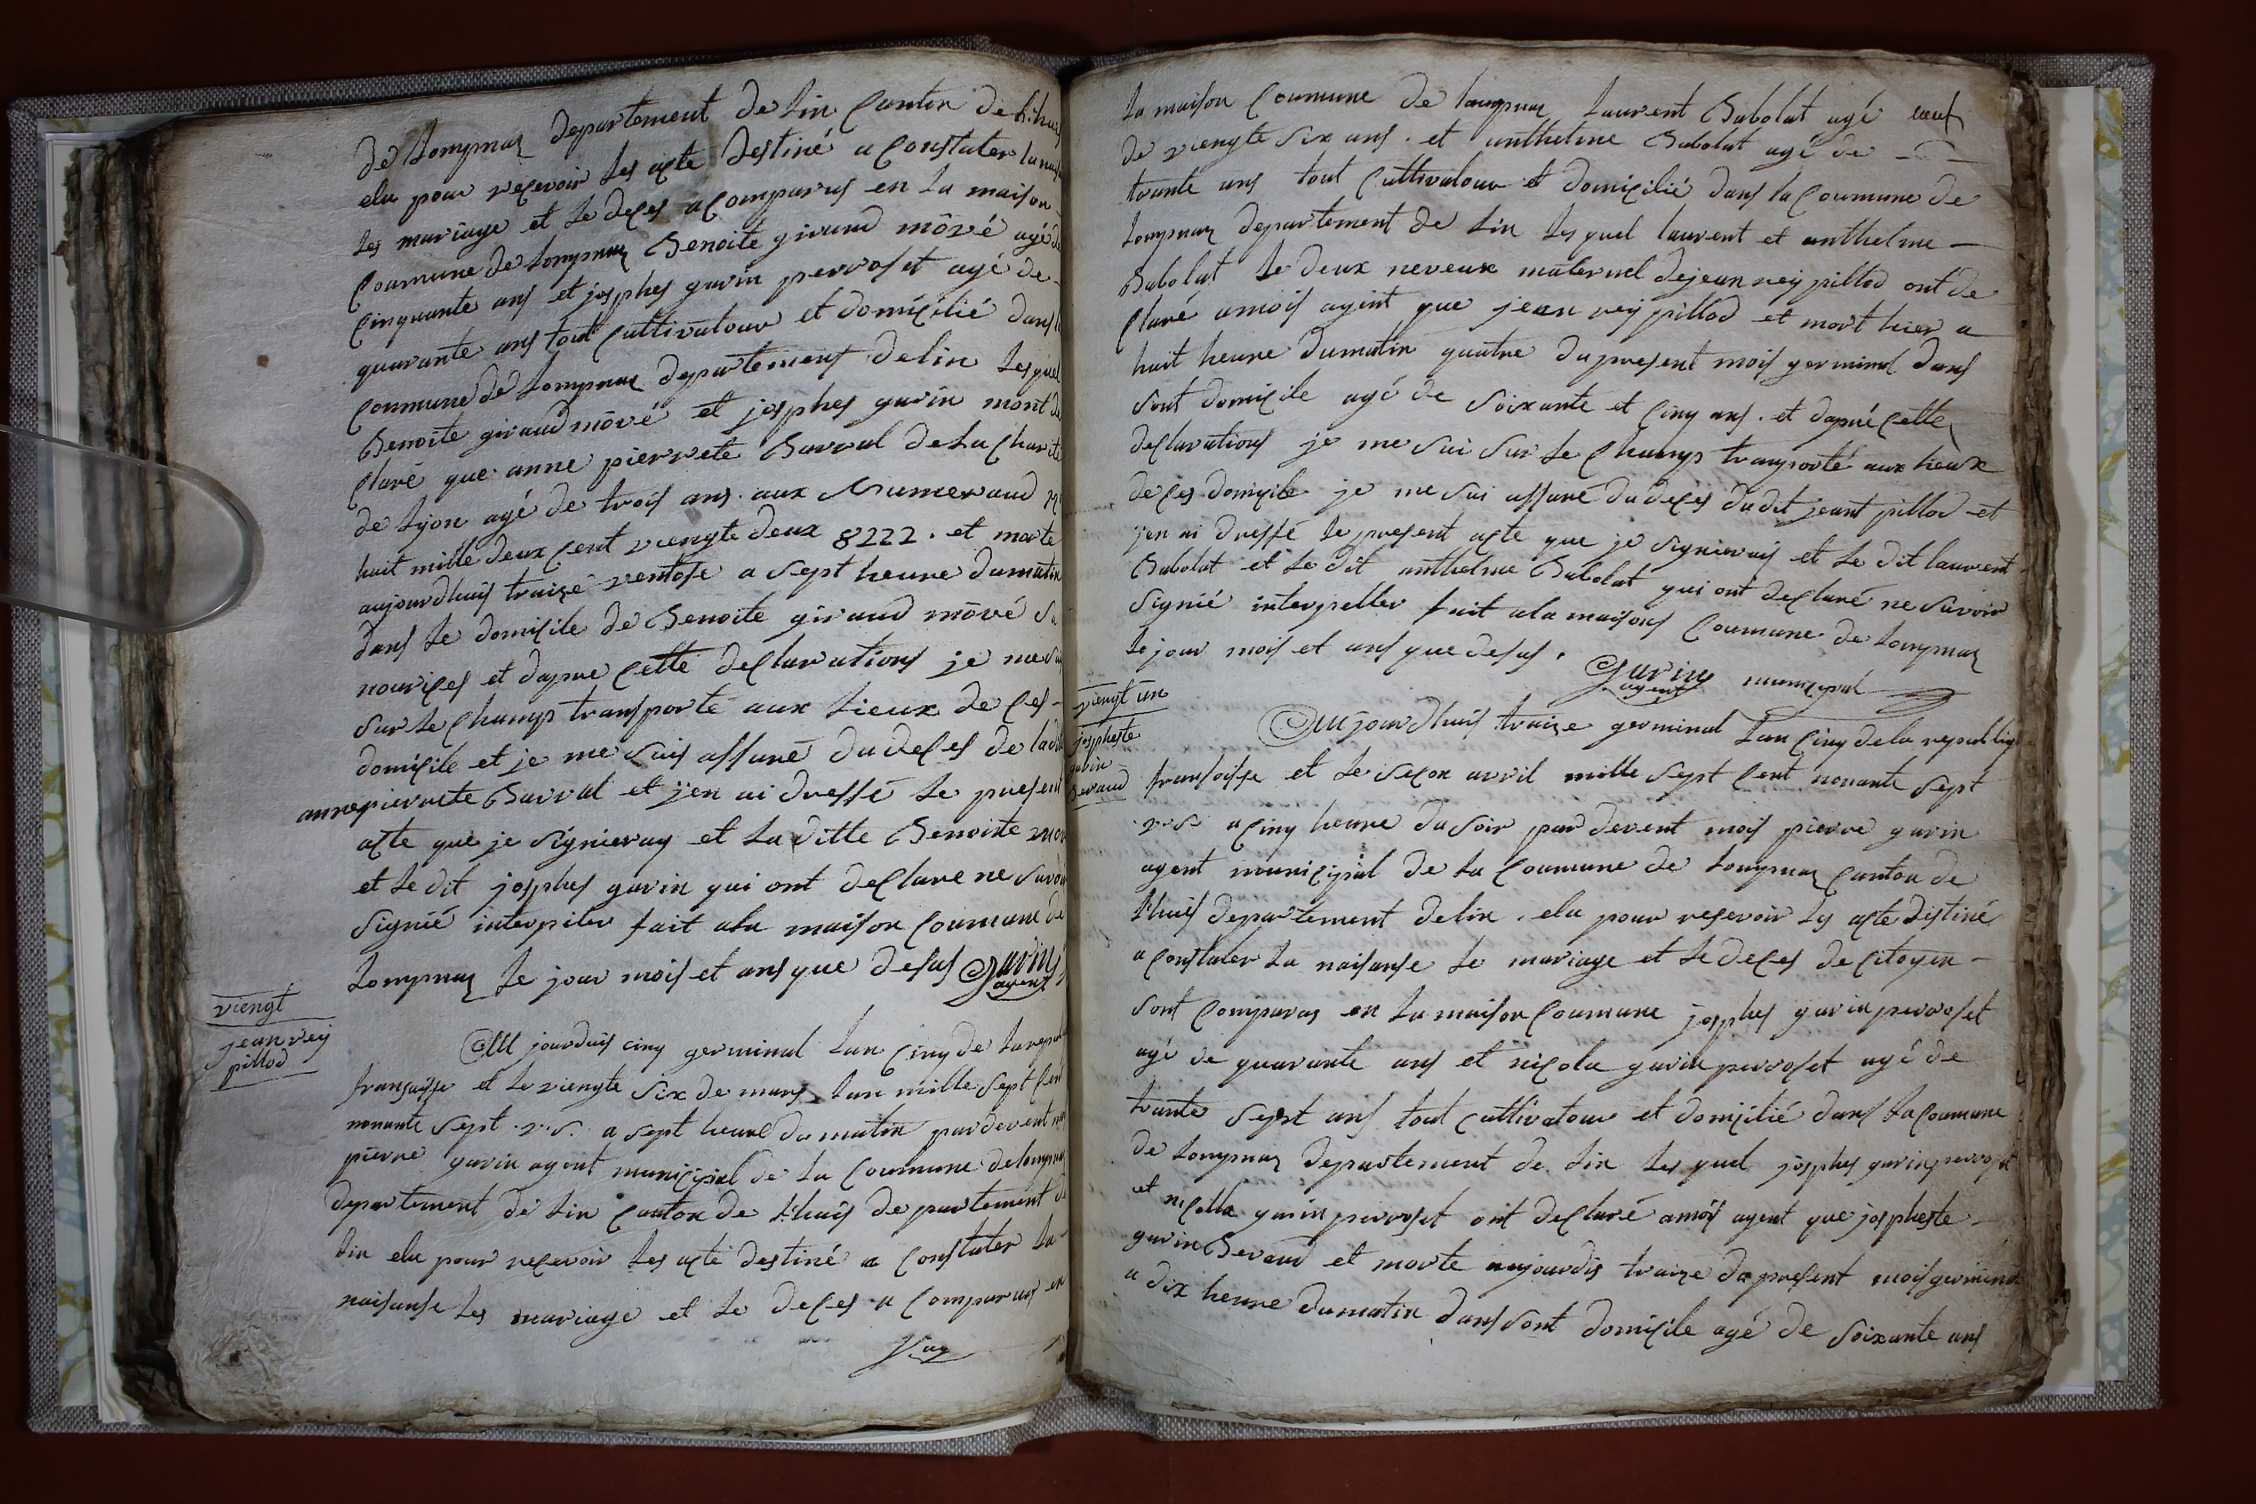 de Lompnaz departement de Lin Canton de
elu pour recevoir les acte destiné a Constater la
les mariage et le deces a Comparus en la maison
Coumune de Lompnaz Benoite giraud môré agé de
Cinquante ans et josphes gavin perroset agé de
quarante ans tout Cultivatour et domicilié dans
Coumune de Lompnaz departement de lin Lesquel
Benoite giraud môré et josphes gavin mont de
Claré que anne pierrete Barral de La Charité
de Lyon agé de trois ans aux Numeraud
huit mille deux Cent viengte deux 8222. et morte
aujourdhuis traize ventose a Sept heure dumatin
dans le domicile de Benoite giraud môré Sa
nourices et dapre Cette declarations je me
Sur le Champs transporté aux Lieux de Ces
domicile et je me Suis assuré du deces de
annepierrete Barral et j'en ai dressé le present
acte que je Signieray et La ditte Benoite
et Le dit josphes gavin qui ont declare ne Savoir
Signié interpiler fait ala maison Coumune de
Lompnaz le jour mois et ans que desus Gavin
agent
viengt
jean rey
pillod
Au jourduis cinq germinal Lan Cinq de La
fransaisse et le viengte Six de mars Lan mille Sept Cent
nonante Sept v.S. a Sept heure du matin pardevent
pierre gavin agent municipal de La Coumune de lompnaz
departement de Lin Canton de Lhuis departement de
Lin elu pour recevoir Les acte destiné a Constater La
naisanse Les mariage et Le deces a Comparus en
La maison Coumune de lompnaz Laurent Babolat agé
de viengte Six ans. et anthelme Babolat agé de
trante ans tout Cultivatour et domicilié dans la Coumune de
Lompnaz departement de Lin Lesquel laurent et anthelme
Babolat Le deux neveux maternel dejean rey pillod ont de
Claré amois agent que jean rey pillod et mort hier a
huit heure dumatin quatre du present mois germinal dans
Sont domicile agé de Soixante et Cinq ans. et dapré Cette
declarations je me Sui Sur Le Champs transporté aux Lieux
de Ces domicile je me Sui assuré du deces dudit jeant pillod et
j'en ai dressé le present acte que je Signierais et Le dit laurent
Babolat et Le dit anthelme Babolat qui ont declaré ne Savoir
Signié interpeller fait ala maisons Coumune de Lompnaz
Le jour mois et ans que desus. Gavin municipal
agent
viengt un
jospheste
gavin
Beraud
Aujourdhuis traize germinal Lan Cinq dela republique
fransoisse et Le Secon avril mille Sept Cent nonante Sept
v.S. a Cinq heure du Soir par devent mois pierre gavin
agent municipal de La Coumune de Lompnaz Canton de
Lhuis departement delin. elu pour recevoir Les acte destiné
a Constater La naisanse Le mariage et Le deces de Citoyen
Sont Comparus en La maison Coumune josphes gavin perroset
agé de quarante ans et nicola gavin perroset agé de
trante Sept ans tout Cultivatour et domicilié dans La Coumune
de Lompnaz departement de Lin Lesquel josphes gavin perroset
et nicolla gavin perroset ont declaré amois agent que jospheste
gavin Beraud et morte aujourdis traize du present mois germinal
a dix heure dumatin dans Sont domicile agé de Soixante ans